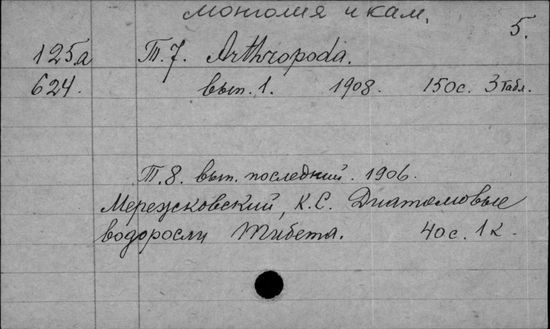 Монголия и кам.
5.
125а Т.7. Arthropoda.
624. вып. 1. 1908. 150с. 3 табл.
Т.8. вып. последний. 1906.
Мережковский, К.С. Диатомовые
водоросли Тибета. 40с. 1 к.